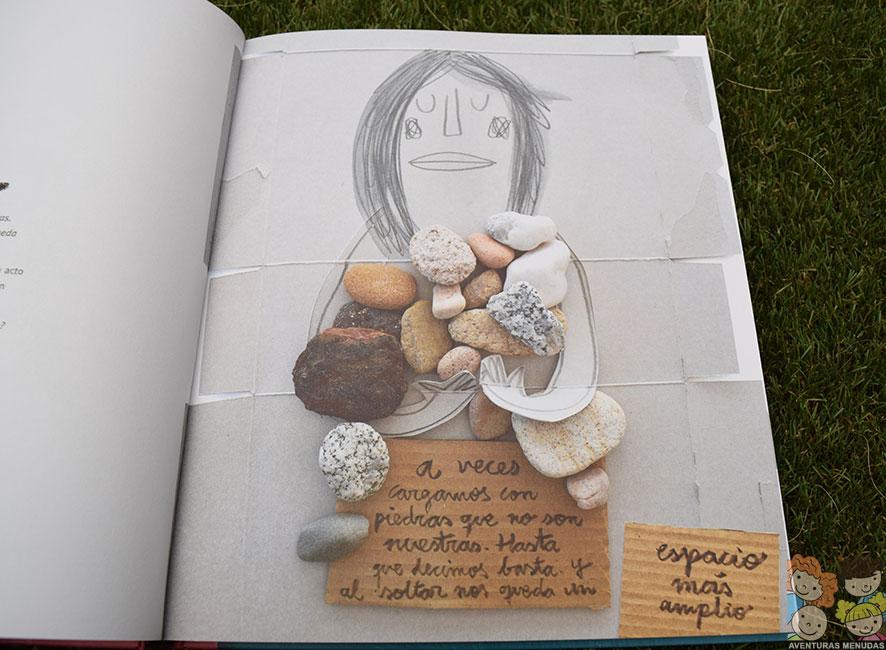 as.
eda
acto
n
?
a veces
cargamos con
piedras que no son
nuestras. Hasta
que decimos basta. Y
al soltar nos queda un
espacio
más
amplio
AVENTURAS MENUDAS